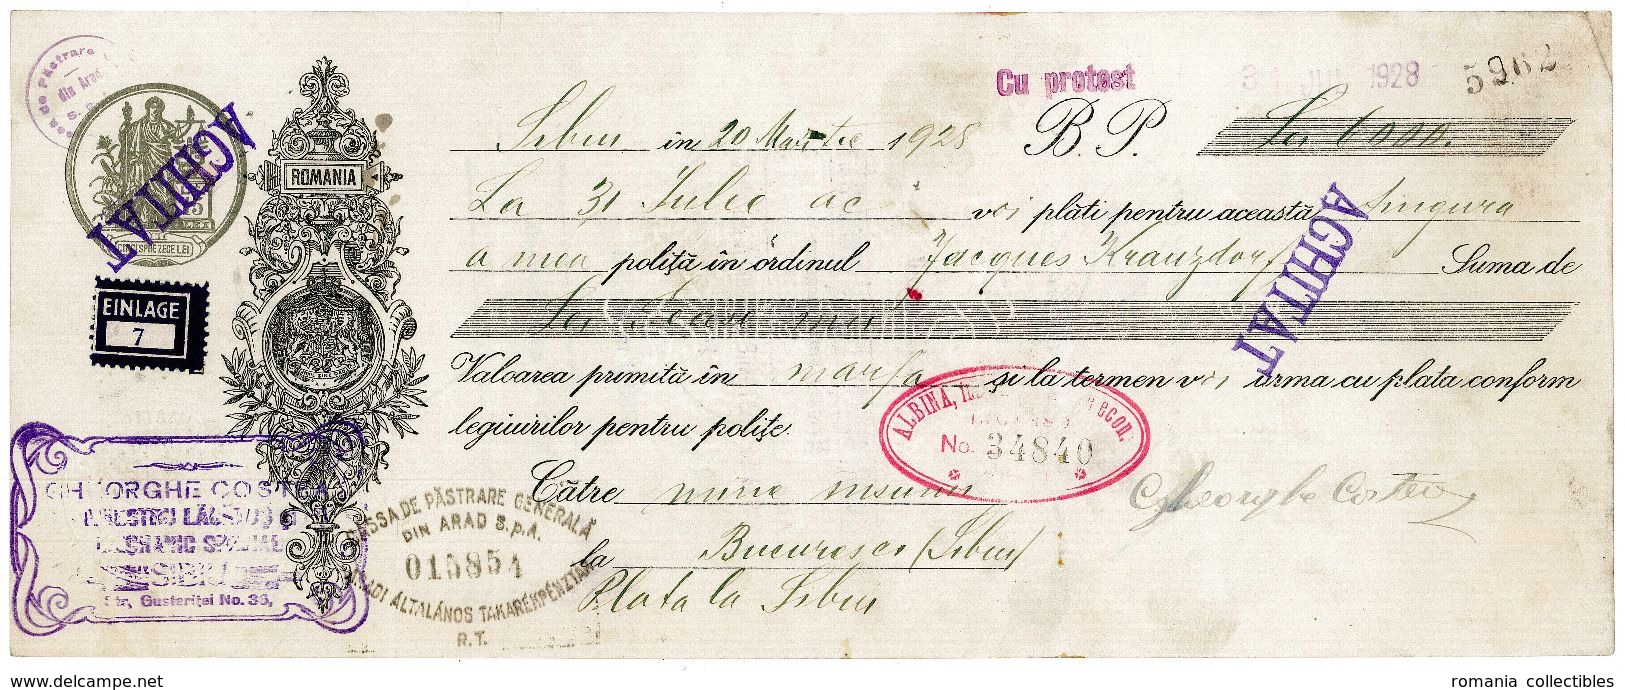 Cu protest 1928 5962
Sibiu în 20 Martie 1928 B. P. Lei 6000.
La 31 Iulie ac voi plăti pentru această singura
a mea poliță în ordinul Jacques Kranzdorf Suma de
Lei
Valoarea primită în marfa și la termen voi urma cu plata conform
legiuirilor pentru polițe.
Către mine insumi
la București (Sibiu)
Plata la Sibiu
Gheorghe Costea
ROMANIA
ACHITAT
ACHITAT
CINCISPREZECE LEI
EINLAGE
7
de Păstrare
din Arad
GHEORGHE COSTEA
MECHANIC SPECIAL
SIBIU
Str. Gusteriței No. 36,
CASSA DE PĂSTRARE GENERALĂ
DIN ARAD S.p.A.
015854
ARADI ÁLTALÁNOS TAKARÉKPÉNZTÁR
R.T.
ALBINA, econ.
No. 34840
www.delcampe.net
romania collectibles